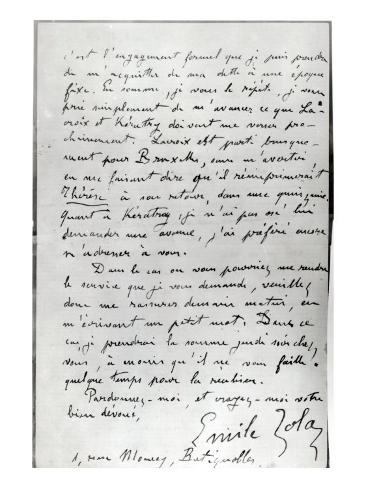 c'est l'engagement formel que je puis prendre
de m'acquitter de ma dette à une époque
fixe. En somme, je vous le répète, je vous
prie simplement de m'avancer ce que La-
croix et Kératry doivent me verser pro-
chainement. Lacroix est parti brusque-
ment pour Bruxelles, sans m'avertir,
en me faisant dire qu'il réimprimerait
Thérèse à son retour, dans une quinzaine.
Quant à Kératry, je n'ai pas osé lui
demander une avance, j'ai préféré encore
m'adresser à vous.
Dans le cas où vous pourriez me rendre
le service que je vous demande, veuillez
donc me rassurer demain matin, en
m'écrivant un petit mot. Dans ce
cas, je prendrai la somme jeudi soir chez
vous, à moins qu'il ne vous faille
quelque temps pour la réaliser.
Pardonnez-moi, et croyez-moi votre
bien dévoué,
Emile Zola
1, rue Moncey, Batignolles.